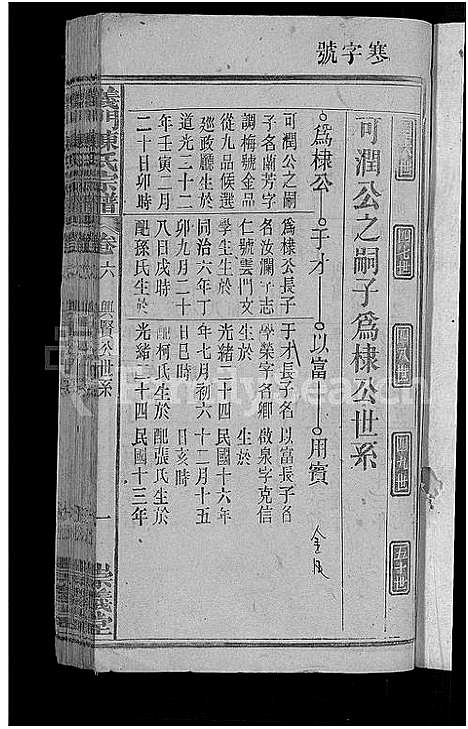 寒字號
可潤公之嗣子爲棣公世系
爲棣公
于才
以富
用賓
可潤公之嗣
子名蘭芳字
調梅號金品
從九品候選
巡政廳生於
道光二十二
年壬寅二月
二十日卯時
爲棣公長子
名汝瀾字志
仁號雲門文
學生生於
同治六年丁
卯九月二十
八日戌時
配孫氏生於
于才長子名
學榮字名卿
生於
光緒二十四
年七月初六
日巳時
配柯氏生於
光緒二十四
以富長子名
啟泉字克信
生於
民國十六年
十二月十五
日亥時
配張氏生於
民國十三年
義門陳氏宗譜
卷十六
興賢公世系
一
崇義堂
四九世
五十世
FamilySearch